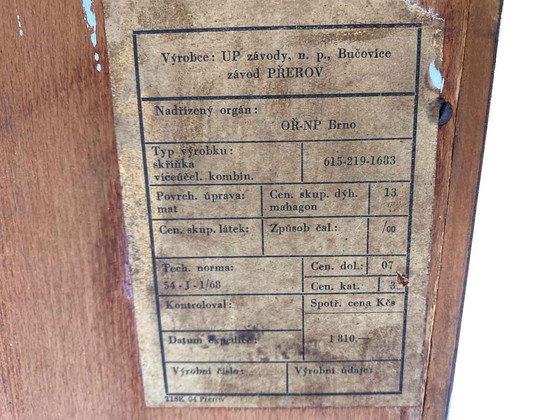 Výrobce: UP závody, n. p., Bučovice
závod PŘEROV
Nadřízený orgán:
OŘ-NP Brno
Typ výrobku:
skříňka
víceúčel. kombin.
615-219-1633
Povrch. úprava:
mat
Cen. skup. dýh.
mahagon
13
Cen. skup. látek:
Způsob čal.:
/00
Tech. norma:
54-J-1/68
Cen. dol.: 07
Cen. kat. 3
Kontroloval:
Spotř. cena Kčs
Datum expedice:
1 810,—
Výrobní číslo:
Výrobní údaje:
TISK, 04 Přerov